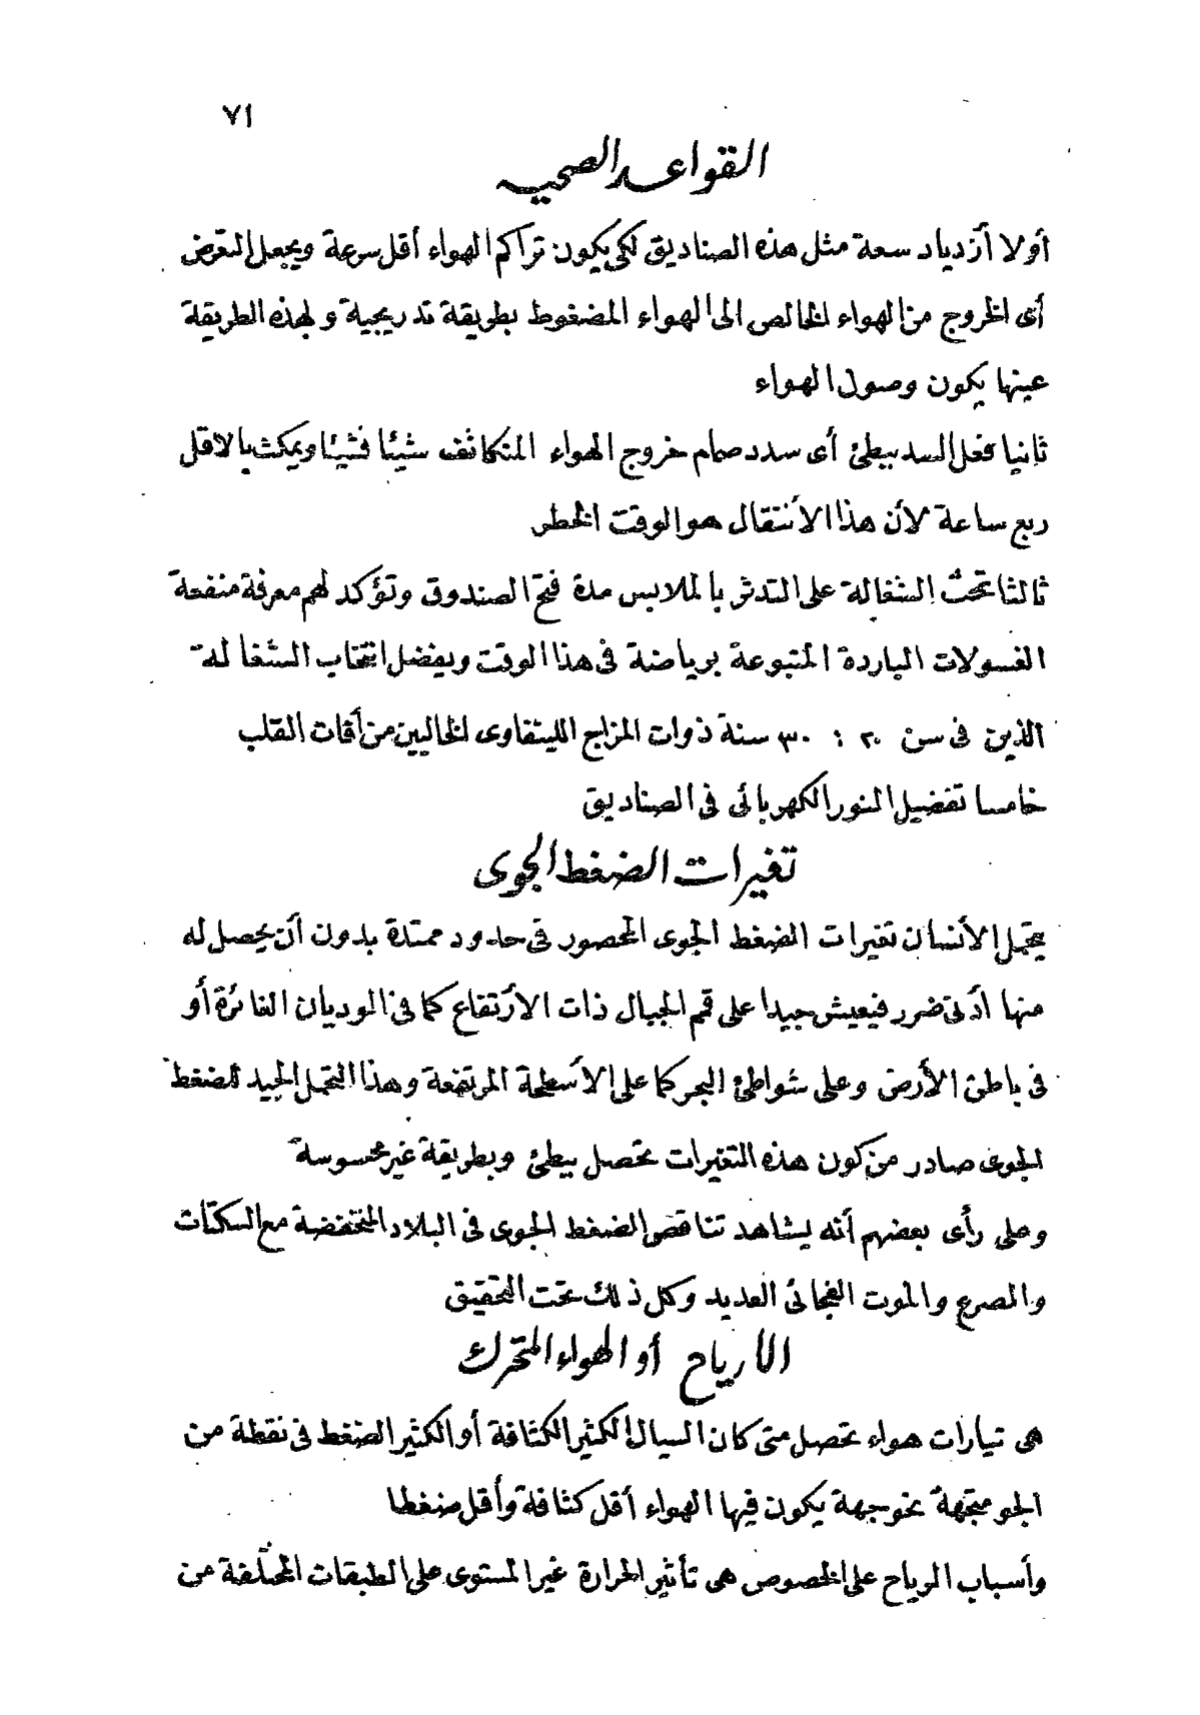 ٧١
القواعد الصحيه
أولا أزدياد سعة مثل هذه الصناديق لكى يكون تراكم الهواء أقل سرعة ويجعل التعرض
أى الخروج من الهواء الخالص الى الهواء المضغوط بطريقة تدريجية وبهذه الطريقة
عينها يكون وصول الهواء
ثانيا فعل السد ببطئ أى سدد صمام خروج الهواء المتكاثف شيئا فشيئا ويمكث بالاقل
ربع ساعة لأن هذا الأنتقال هو الوقت الخطر
ثالثا تحث الشغالة على التدثر بالملابس مدة فتح الصندوق وتؤكد لهم معرفة منفعة
الغسولات الباردة المتبوعة برياضة فى هذا الوقت ويفضل انتخاب الشغالة
الذين فى سن ٢٠ : ٣٠ سنة ذوات المزاج اللينفاوى الخاليين من أفات القلب
خامسا تفضيل النور الكهربائى فى الصناديق
تغيرات الضغط الجوى
يحتمل الأنسان تغيرات الضغط الجوى المحصور فى حدود ممتدة بدون أن يحصل له
منها أدنى ضرر فيعيش جيدا على قمم الجبال ذات الأرتفاع كما فى الوديان الغائرة أو
فى باطن الأرض وعلى شواطئ البحر كما على الأسطحة المرتفعة وهذا التحمل الجيد للضغط
الجوى صادر من كون هذه التغيرات تحصل ببطئ وبطريقة غير محسوسة
وعلى رأى بعضهم أنه يشاهد تناقص الضغط الجوى فى البلاد المنخفضة مع السكتات
والمصرع والموت الفجائى العديد وكل ذلك تحت التحقيق
الأرياح أو الهواء المتحرك
هى تيارات هواء تحصل متى كان السيال الكثير الكثافة أو الكثير الضغط فى نقطة من
الجو متجهة نحو جهة يكون فيها الهواء أقل كثافة وأقل ضغطا
وأسباب الرياح على الخصوص هى تأثير الحرارة غير المستوى على الطبقات المختلفة من